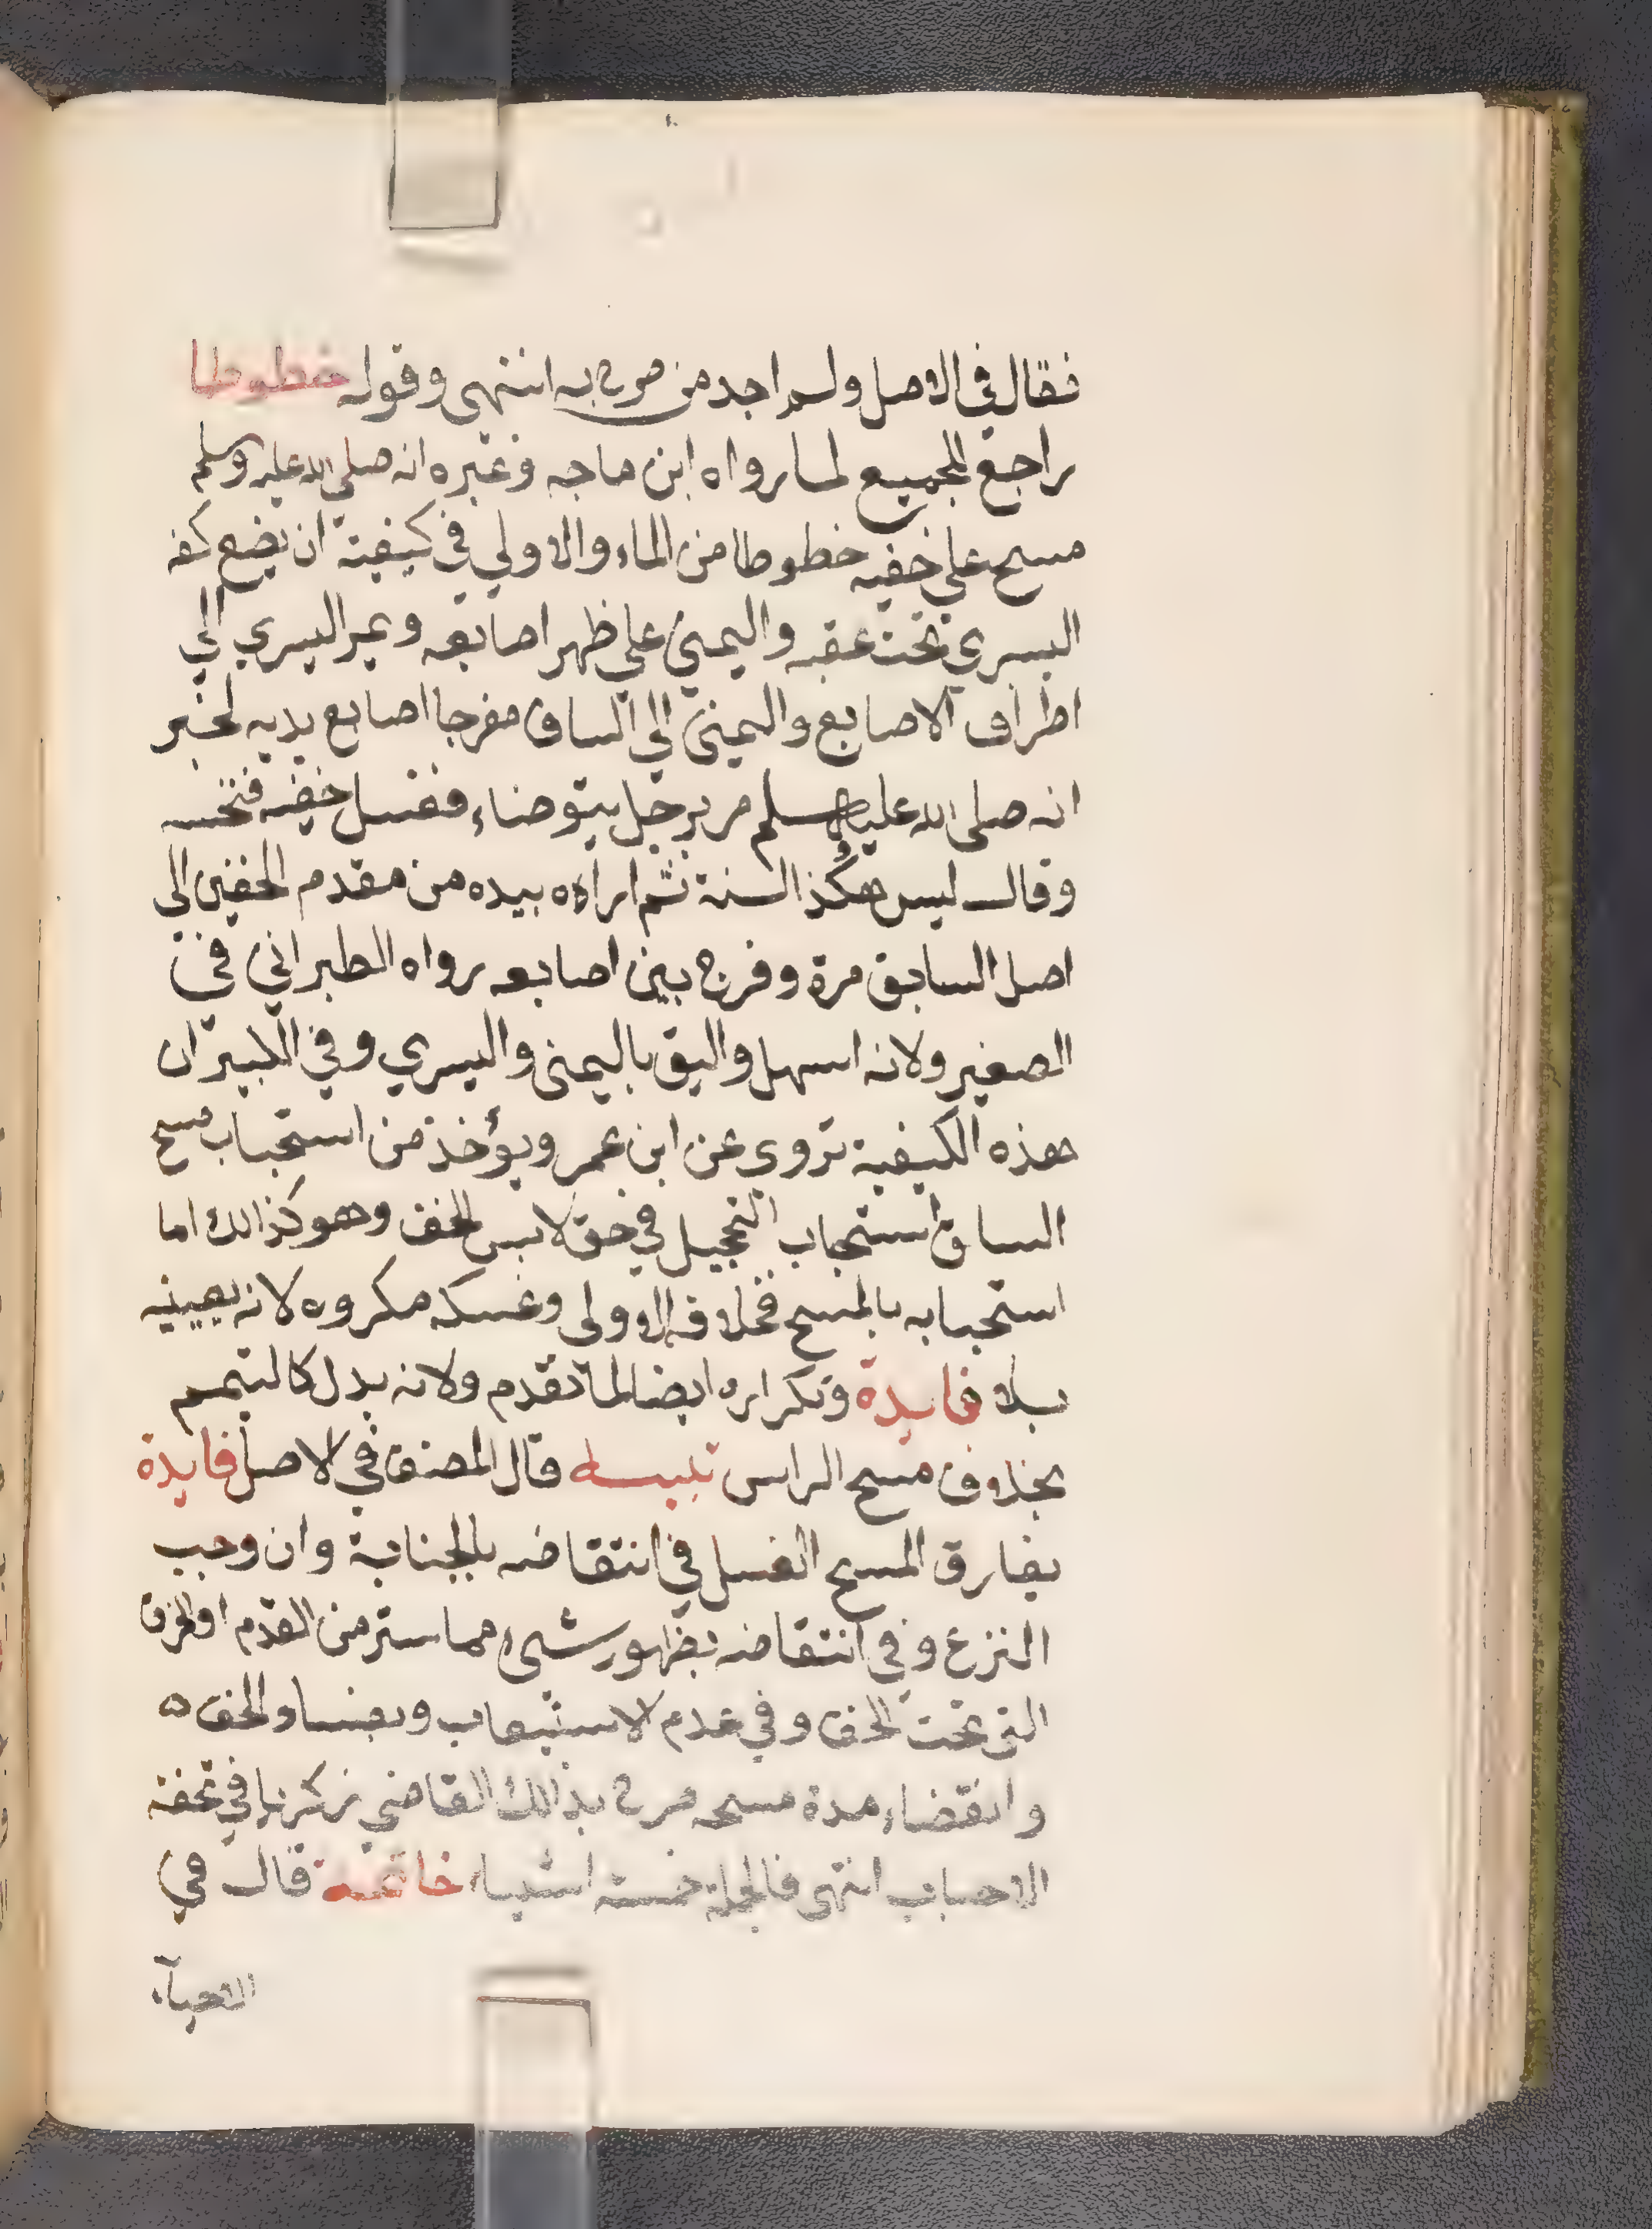 فقال في الاصل ولم اجد من صرح به انتهى وقوله خطوطا
راجع للجميع لما رواه ابن ماجه وغيره انه صلى الله عليه وسلم
مسح على خفيه خطوطا من الماء والاولي في كيفيته ان يضع كفه
اليسري تحت عقبه واليمنى على ظهر اصابعه ويمر اليسري الي
اطراف الاصابع واليمنى الي الساق مفرجا اصابع يديه لخبر
انه صلى الله عليه وسلم مر برجل يتوضاء فغسل خفيه فنخسه
وقال ليس هكذا السنة ثم اراه بيده من مقدم الخفين الي
اصل السابق مرة وفرج بين اصابعه رواه الطبراني في
الصغير ولانه اسهل واليق باليمنى واليسري وفي الكبير ان
هذه الكيفية تروى عن ابن عمر ويؤخذ من استحباب مسح
الساق استحباب التحجيل في حق لابس الخف وهو كذالك اما
استحبابه بالمسح فخلاف الاولى وغسله مكروه لانه يعيبه
بلا فايدة وتكراره ايضا لما تقدم ولانه بدل كالتيمم
بخلاف مسح الراس تنبيه قال المصنف في الاصل فايدة
يفارق المسح الغسل في انتقاضه بالجنابة وان وجب
النزع وفي انتقاضه بظهور شيء مما ستر من القدم او الخرق
التي تحت الخف وفي عدم الاستيعاب وبفساد الخف ٥
وانقضاء مدة مسحه صرح بذالك القاضي زكريا في تحفة
الاحباب انتهى فالجملة خمسة اشياء خاتمة قال في
الاحياء